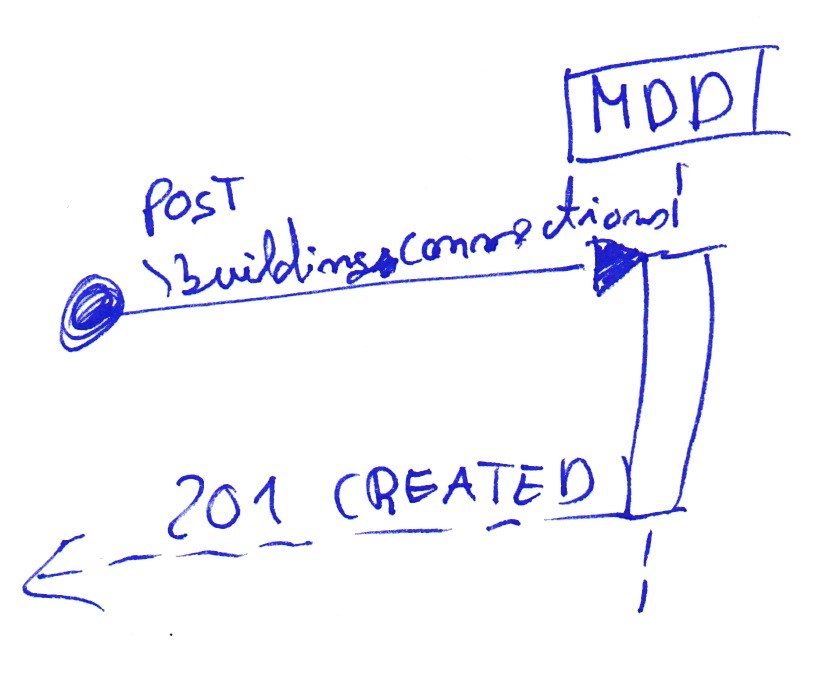 MDD
POST
\buildingsconnections
201 CREATED